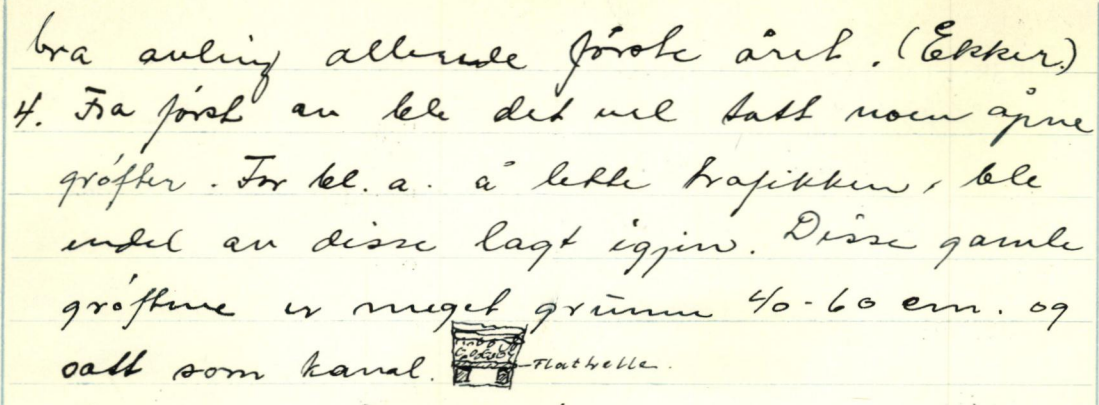 bra avling allerede første året. (Ekker.)
4. Fra først av ble det vel tatt noen åpne
grøfter. For bl. a. å lette trafikken, ble
endel av disse lagt igjen. Disse gamle
grøftene er meget grunne 40-60 cm. og
satt som kanal. Flathelle.